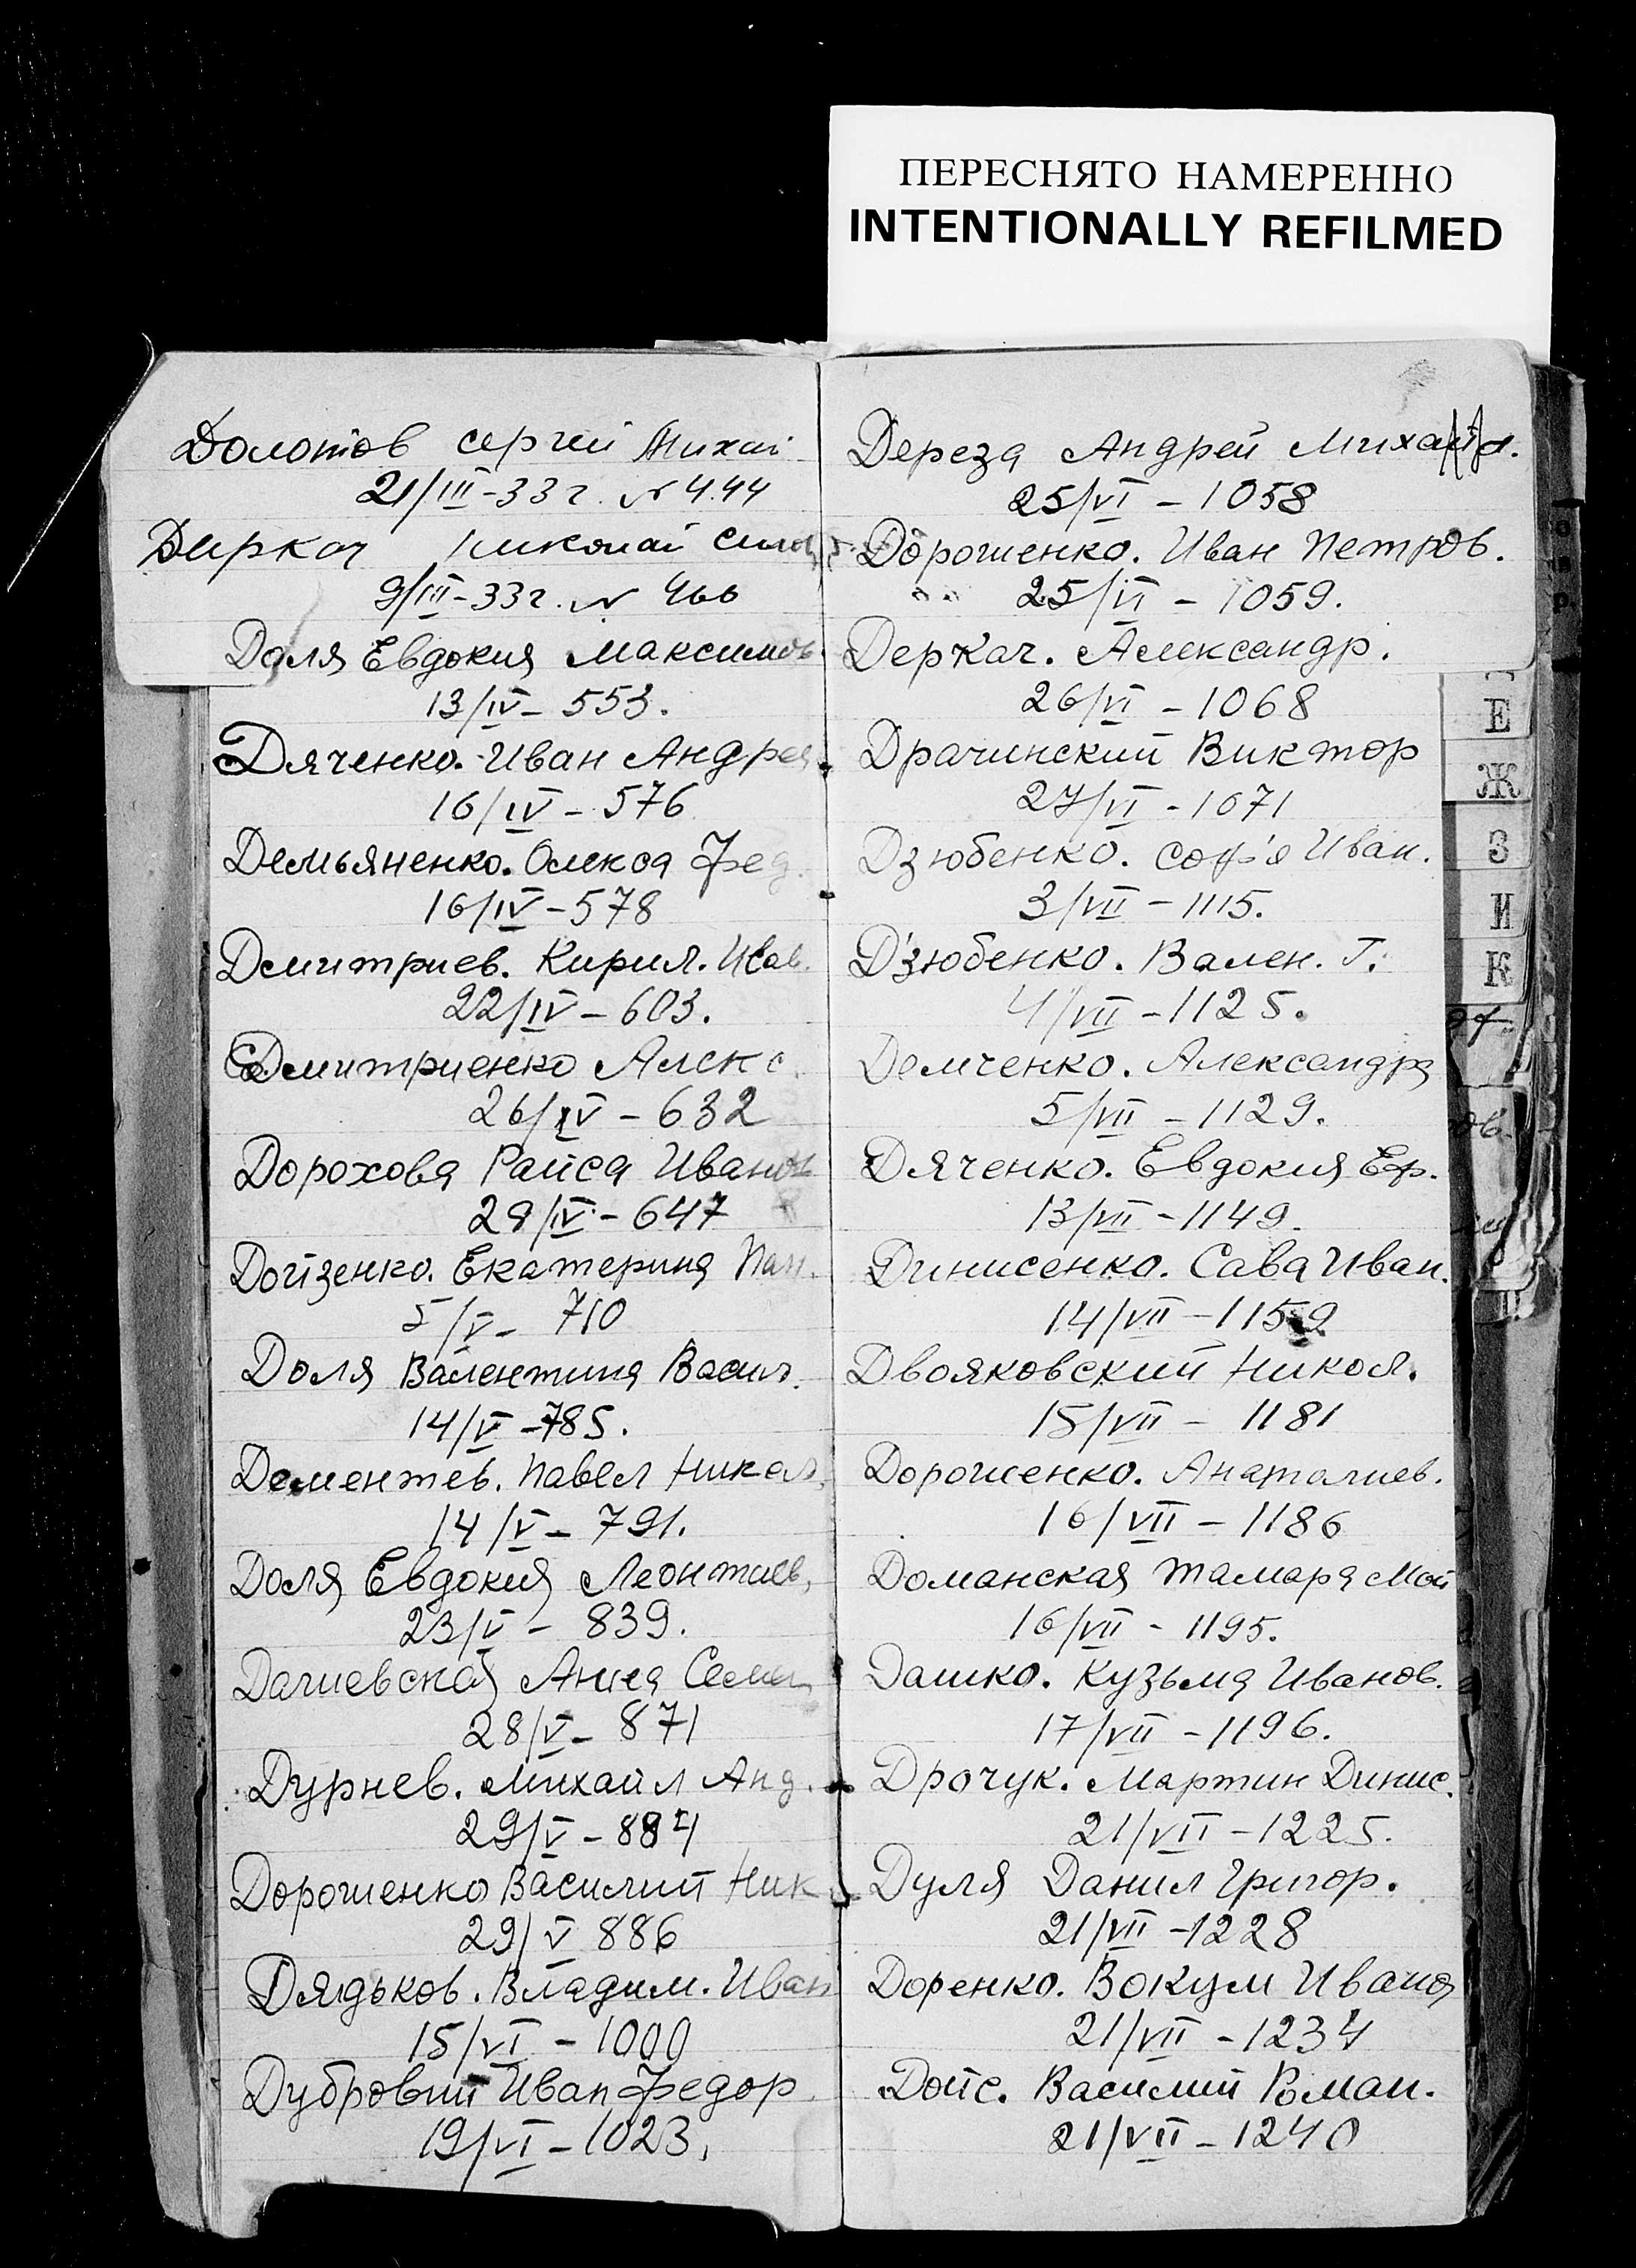 ПЕРЕСНЯТО НАМЕРЕННО
INTENTIONALLY REFILMED
Долотов Сергей Михай
21/III-33г. № 444
Диркач Николай
9/III-33г. № 466
Доля Евдокия Максимов.
13/IV - 553.
Дяченко. Иван Андрея
16/IV - 576
Демьяненко. Олекса Фед.
16/IV - 578
Дмитриев. Кирил. Ив.
22/IV - 603.
Дмитриенко Алекс.
26/IV - 632
Дорохова Раиса Иванов
28/IV - 647
Дойзенко. Екатерина Пан.
5/V - 710
Доля Валентина Васил.
14/V - 785.
Дементев. Павел Никол.
14/V - 791.
Доля Евдокия Леонтиев.
23/V - 839.
Дачиевская Анна Семен
28/V - 871
Дурнев. Михайл Анд.
29/V - 884
Дорошенко Василий Ник
29/V 886
Дядьков. Владим. Иван
15/VI - 1000
Дубровий Иван Федор
19/VI - 1023.
Дереза Андрей Михайл.
25/VI - 1058
Дорошенко. Иван Петров.
25/VI - 1059.
Деркач. Александр.
26/VI - 1068
Драчинский Виктор
27/VI - 1071
Дзюбенко. Соф'я Иван.
3/VII - 1115.
Дзюбенко. Вален. Г.
4/VII - 1125.
Демченко. Александра
5/VII - 1129.
Дяченко. Евдокия Еф.
13/VII - 1149.
Динисенко. Сава Иван.
14/VII - 1159
Двояковский Никол.
15/VII - 1181
Дорошенко. Анаталиев.
16/VII - 1186
Доманская Тамара Мои
16/VII - 1195.
Дашко. Кузьма Иванов.
17/VII - 1196.
Дрочук. Мартин Динис.
21/VII - 1225.
Дуля Данил Григор.
21/VII - 1228
Доренко. Вокум Иванов
21/VII - 1234
Дойс. Василий Роман.
21/VII - 1240
Е
Ж
З
И
К